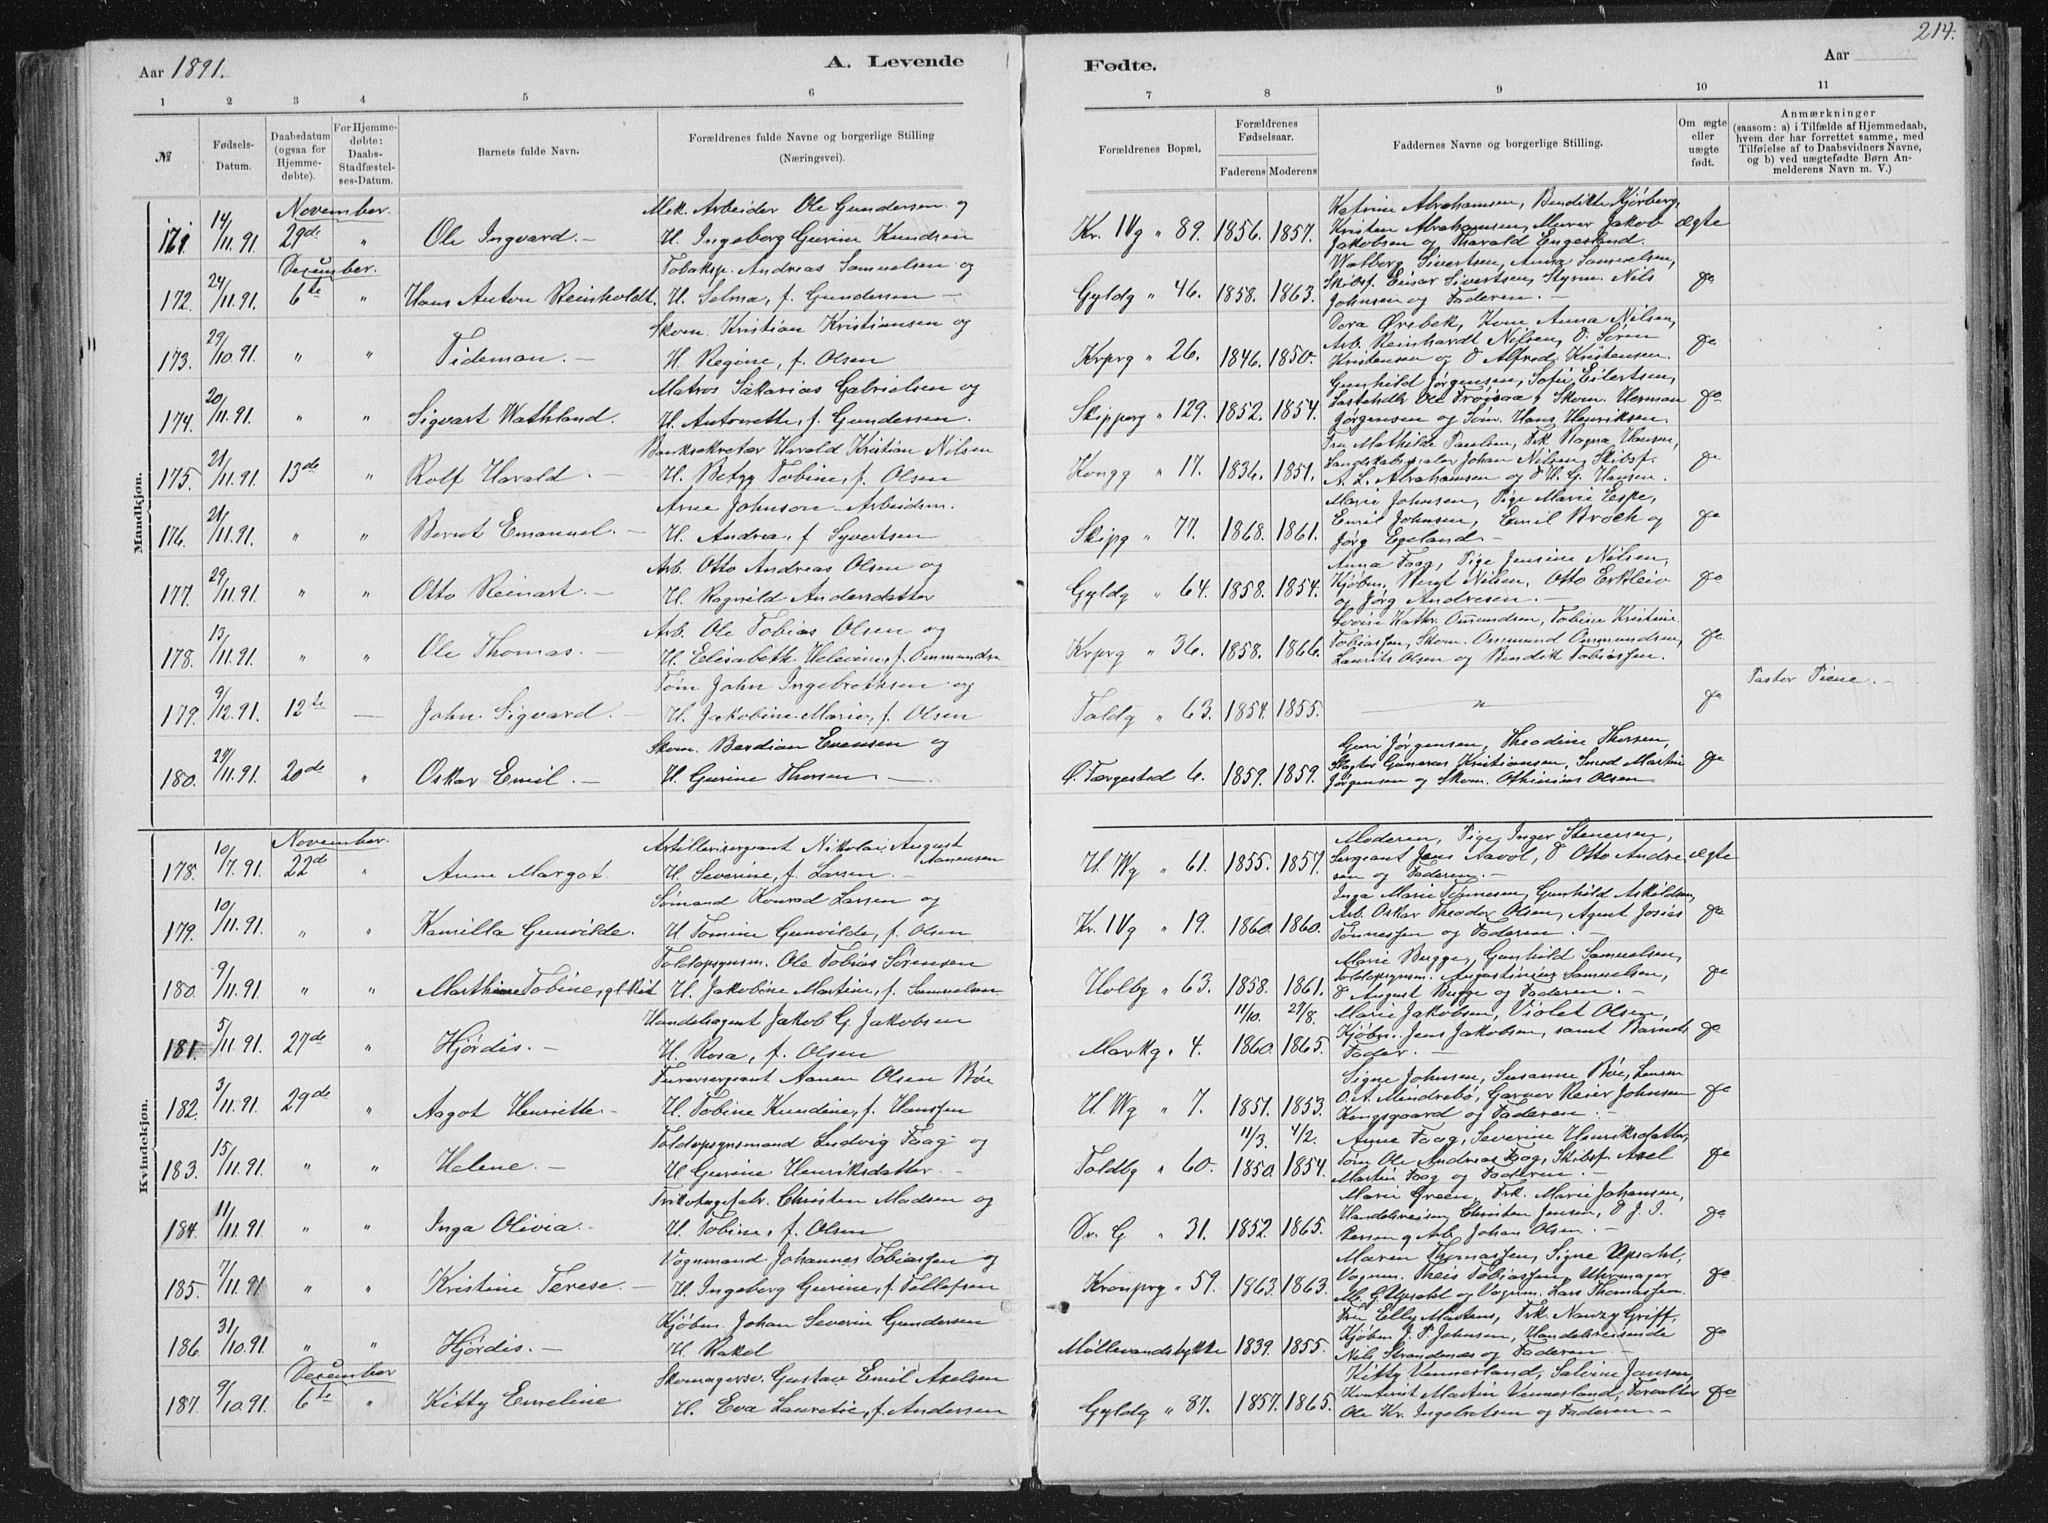 214.
Aar 1891.
A. Levende
Fødte.
Aar
1 2 3 4 5 6 7 8 9 10 11
№
Fødsels-Datum.
Daabsdatum (ogsaa for Hjemme-døbte).
For Hjemme-døbte: Daabs-Stadfæstel-ses-Datum.
Barnets fulde Navn.
Forældrenes fulde Navne og borgerlige Stilling (Næringsvei).
Forældrenes Bopæl.
Forældrenes Fødselsaar.
Faderens Moderens
Faddernes Navne og borgerlige Stilling.
Om ægte eller uægte født.
Anmærkninger
(saasom: a) i Tilfælde af Hjemmedaab, hvem der har forrettet samme, med Tilføielse af to Daabsvidners Navne, og b) ved uægtefødte Børn An-melderens Navn m. V.)
Mandkjøn.
November.
171 14/11.91. 29de " Ole Ingvard. —
Mek. Arbeider Ole Gundersen og
H. Ingeborg Gurine Knudsen
Kr. IVg " 89. 1856. 1857.
Katrine Abrahamsen, Bendikte Kjørberg,
Kristen Abrahamsen, Murer Jakob
Jakobsen og Tharald Engesland.
ægte
December.
172. 24/11.91. 6te " Hans Anton Reinholdt.
Tobaksp. Andreas Samuelsen og
H. Selma, f. Gundersen —
Gyldg " 46. 1858. 1863.
Walborg Sivertsen, Anna Samuelsen,
Skibsf. Einar Sivertsen, Styrm. Nils
Johnsen og Faderen. —
do
173. 29/10.91. " " Tideman. —
Skom. Kristian Kristiansen og
H. Regine, f. Olsen
Krprg " 26. 1846. 1850.
Dora Ørebek, Kone Anna Nilsen,
Arb. Reinhardt Nilsen, D. Søren
Kristensen og D Alfred Kristensen.
do
174. 20/11.91. " " Sigvart Wathland.
Matros Sakarias Gabrielsen og
H. Antonette, f. Gundersen.
Skipperg " 129. 1852. 1854.
Gunhild Jørgensen, Sofie Eilertsen,
Ole Trøisaa, Skom. Herman
Jørgensen og Søm. Hans Henriksen.
do
175. 21/11.91. 13de " Rolf Harald. —
Banksekretær Harald Kristian Nilsen
H. Betzy Tobine, f. Olsen
Kongg " 17. 1836. 1851.
Fru Mathilde Paulsen, Frk. Ragna Hansen,
Landskabsmaler Johan Nilsen, Skibsf.
A. L. Abrahamsen og D H. G. Hansen.
do
176. 21/11.91. " " Bernt Emanuel. —
Arne Johnson Arbeidsm.
H. Andrea, f Syvertsen
Skipg " 77. 1868. 1861.
Marie Johnsen, Pige Marie Espe,
Emil Johnsen, Emil Broch og
Jørg Egeland. —
do
177. 29/11.91. " " Otto Reinart. —
Arb. Otto Andreas Olsen og
H. Ragnild Andersdatter
Gyldg " 64. 1858. 1854.
Anna Faag, Pige Jensine Nilsen,
Kjøbm. Bergt Nilsen, Otto Erkleiv
og Jørg Andresen. —
do
178. 13/11.91. " " Ole Thomas. —
Arb. Ole Tobias Olsen og
H. Elisabeth Helevine, f. Ommundsn
Krprg " 36. 1858. 1866.
Lovise Kathr. Ommundsen, Tobine Kristine
Tobiassen, Skom. Ommund Ommundsen,
Laurits Olsen og Bendik Tobiassen.
do
179. 9/12.91. 12te — John Sigvard. —
Tøm John Ingebrethsen og
H. Jakobine Marie, f. Olsen
Toldg " 63. 1854. 1855.
do
Pastor Piene. —
180. 27/11.91. 20de " Oskar Emil. —
Skom. Berdian Evensen og
H. Gurine Thorsen —
Ø. Færgested 6. 1859. 1859.
Guri Jørgensen, Theodine Thorsen,
Slagter Gunerus Kristiansen, Smed Martin
Jørgensen og Skom. Othinius Olsen
do
Kvindekjøn.
November.
178. 10/7.91. 22de " Anne Margot.
Artillerisergeant Nikolai August Aanensen
H. Severine, f. Larsen. —
H. Wg " 61. 1855. 1857.
Moderen, Pige Inger Stenersen,
Sergeant Jens Aavol, D Otto Andre
sen og Faderen. —
ægte
179. 10/11.91. " " Kamilla Gunvilde.
Sømand Konrad Larsen og
H Tomine Gunvilde, f. Olsen
Kr. IVg " 19. 1860. 1860.
Inga Marie Tønnesen, Gunhild Askildsen,
Arb. Oskar Theodor Olsen, Agent Josias
Tønnessen og Faderen. —
do
180. 9/11.91 " " Marthine Tobine,
Toldopsynsm. Ole Tobias Sørensen
H. Jakobine Martine, f. Samuelsen
Holbg " 63. 1858. 1861.
Marie Bugge, Gunhild Samuelsen,
Toldopsynsm. Augustinius Samuelsen,
D August Bugge og Faderen. —
do
181. 5/11.91. 27de " Hjørdis. —
Handelsagent Jakob G. Jakobsen
H. Rosa, f. Olsen
Markg " 4. 11/10. 1860. 27/8. 1865.
Marie Jakobsen, Violet Olsen,
Kjøbm. Jens Jakobsen, samt Barnets
Fader. —
do
182. 3/11.91. 29de " Aagot Henriette —
Furersergeant Aanen Olsen Bøe
H. Tobine Kundine, f. Hanssen
H. Wg " 7. 1851. 1853.
Signe Johnsen, Susanne Bøe, Lensm
O. A. Mindrebø, Garver Reier Johnsen
Kongsgaard og Faderen. —
do
183. 15/11.91. " " Helene. —
Toldopsynsmand Ludvig Faag og
H Gurine Henriksdatter. —
Toldbg " 60. 11/3. 1850. 4/2. 1854.
Anne Faag, Severine Henriksdatter,
Tøm Ole Andreas Faag, Skibsf. Axel
Martin Faag og Faderen. —
do
184. 11/11.91. " " Inga Olivia. —
Trikotagefabr. Christen Madsen og
H. Tobine, f. Olsen
Dr. G " 31. 1852. 1865.
Marie Green, Frk. Marie Johansen,
Handelsreisen. Christen Jensen, D J. I.
Persen og Arb. Johan Olsen. —
do
185. 7/11.91 " " Kristine Terese —
Vognmand Johannes Tobiassen og
H. Ingeborg Gurine, f. Tellefsen
Kronprg " 59. 1863. 1863.
Maren Thomassen, Signe Upsahl,
Vognm. Theis Tobiassen, Uhrmager
M. G. Upsahl og Vognm. Lars Thomassen.
do
186. 31/10.91. " " Hjørdis. —
Kjøbm. Johan Severin Gundersen
H Rakel
Møllevandsbykke 1839. 1855.
Fru Elly Martens, Frk. Nanzy Griff,
Kjøbm J. P. Johnsen, Handelsreisende
Nils Strandenæs og Faderen. —
do
December
187. 9/10.91. 6te " Kitty Emeline
Skomagersv. Gustav Emil Axelsen
H. Eva Lauretie, f. Andersen
Gyldg " 87. 1857. 1865.
Kitty Vennesland, Saverine Jansen,
Kontorist Martin Vennesland, Forvalter
Ole Kr. Ingebretsen og Faderen —
do